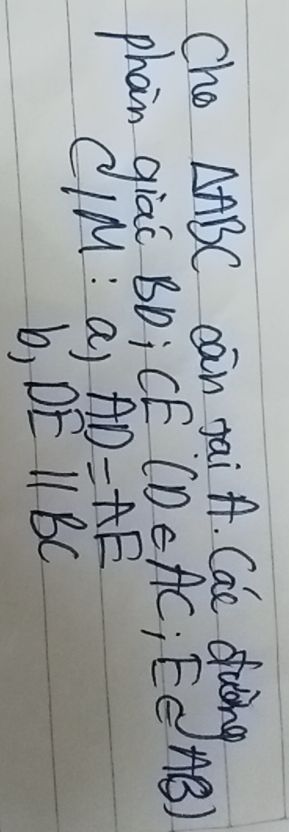 Cho ΔABC cân tại A. Các đường
phân giác BD; CE (D ∈ AC; E ∈ AB)
C/M: a, AD = AE
b, DE // BC